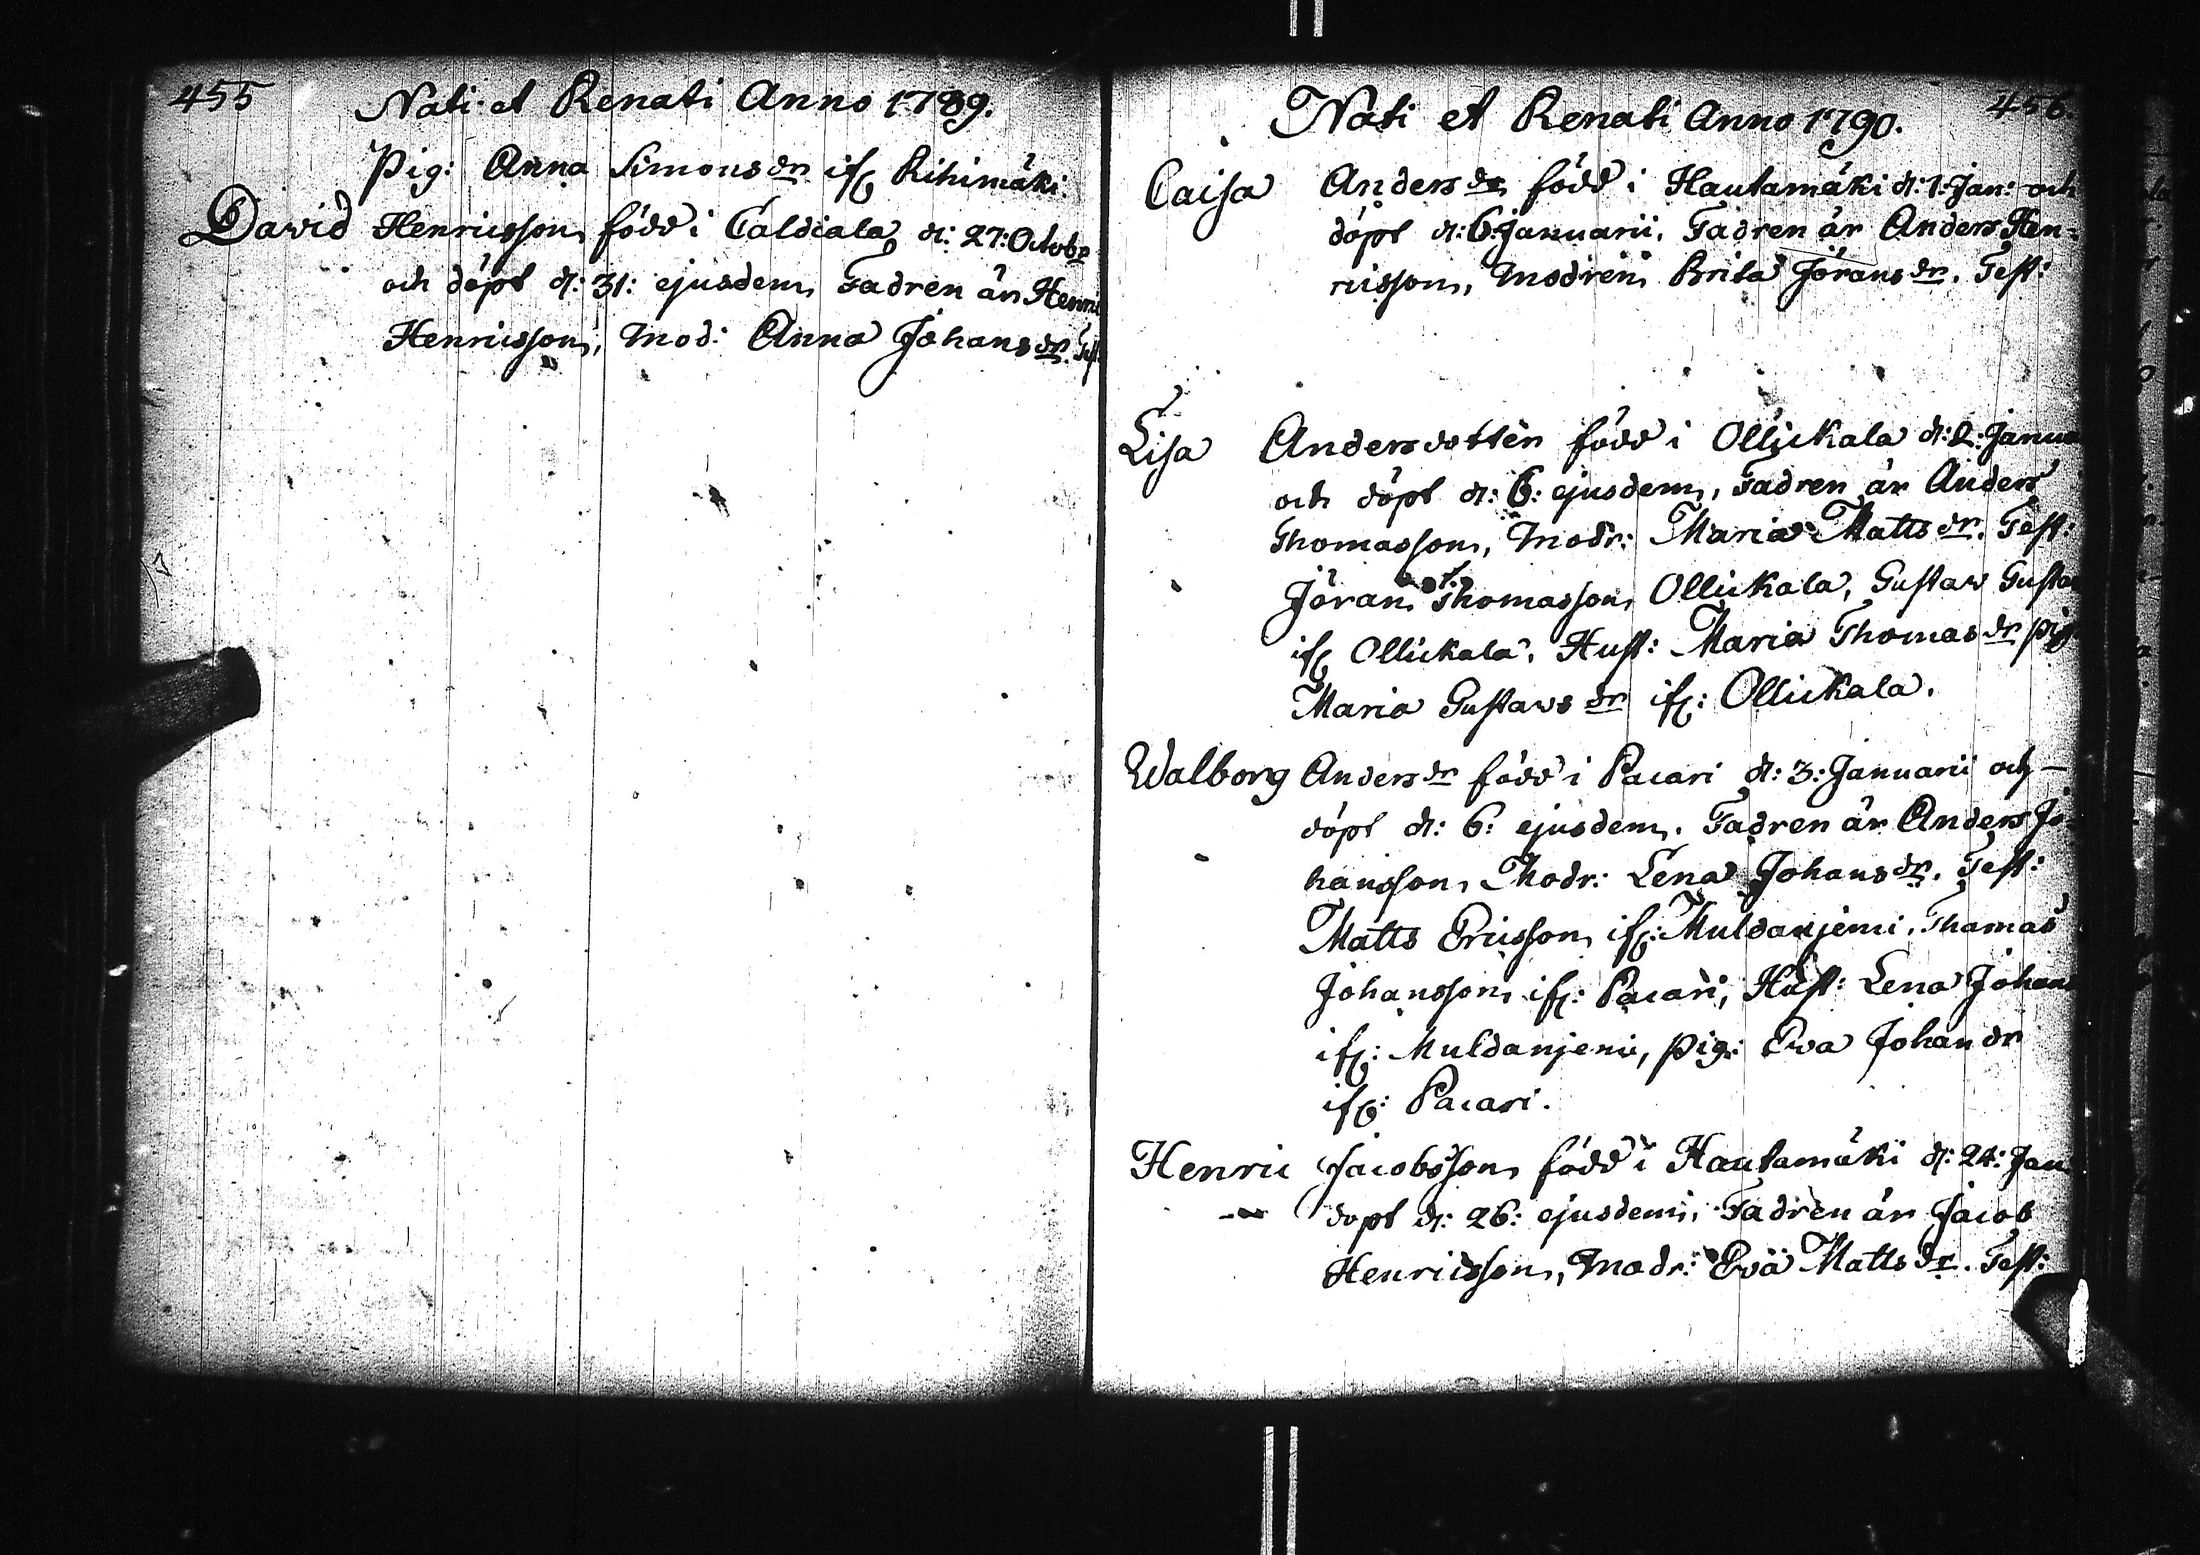 455
Nati et Renati Anno 1789.
Pig: Anna Simonsdr ifr Rihimäki.
David Henricsson född i Caldiala d: 27: Octobr
och döpt d: 31: ejusdem, Fadren är Henric
Henricsson, Mod: Anna Johansdr. Test:
456.
Nati et Renati Anno 1790.
Caisa Andersdr född i Hautamäki d: 1: Jan: och
döpt d: 6: Januarii, Fadren är Anders Hen-
ricsson, Modren Brita Jöransdr. Test:
Lisa Andersdotter född i Ollickala d: 2: Janua
och döpt d: 6: ejusdem, Fadren är Anders
Thomasson, Modr: Maria Mattsdr. Test:
Jöran Thomasson Ollickala, Gustaw Gusta
ifr Ollickala, Hust: Maria Thomasdr pig
Maria Gustawsdr ifr: Ollickala.
Walborg Andersdr född i Pacari d: 3: Januarii och
döpt d: 6: ejusdem. Fadren är Anders Jo-
hansson, Modr: Lena Johansdr. Test:
Matts Ericsson ifr: Muldanjemi, Thomas
Johansson ifr: Pacari, Hust: Lena Johans
ifr: Muldanjemi, pig: Ewa Johandr
ifr: Pacari.
Henric Jacobsson född i Hautamäki d: 24: Jan
döpt d: 26: ejusdem, Fadren är Jacob
Henricsson, Modr: Eva Mattsdr. Test: